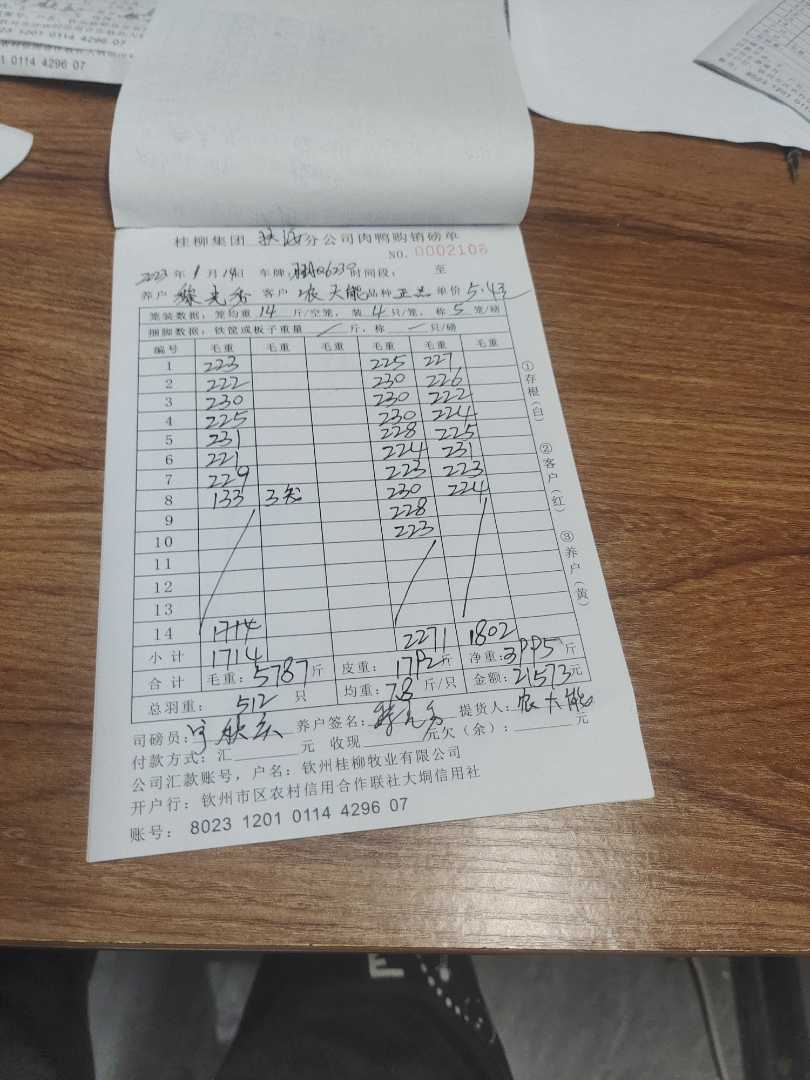 01 0114 4296 07
8023 1201
桂柳集团 钦海分公司肉鸭购销磅单
NO. 0002106
2023年1月14日 车牌: 时间段: 至
养户 客户 农天能 品种 正品 单价 5.43
笼装数据: 笼均重 14 斤/空笼, 装 4 只/笼, 称 5 笼/磅
捆脚数据: 铁筐或板子重量 / 斤, 称 — 只/磅
编号 毛重 毛重 毛重 毛重 毛重 毛重
1 223 225 227
2 222 230 226
3 230 230 222
4 225 230 224
5 231 228 225
6 221 224 231
7 229 223 223
8 133 3笼 230 224
9 228
10 223
11
12
13
14 1714 2271 1802
小计 1714
合计 毛重: 5787斤 皮重: 17P2斤 净重: 3PP5斤
总羽重: 512 只 均重: 7.8 斤/只 金额: 21573元
司磅员: 养户签名: 提货人: 农天能
付款方式: 汇 元 收现 元欠(余): 元
公司汇款账号, 户名: 钦州桂柳牧业有限公司
开户行: 钦州市区农村信用合作联社大垌信用社
账号: 8023 1201 0114 4296 07
①存根(白)
②客户(红)
③养户(黄)